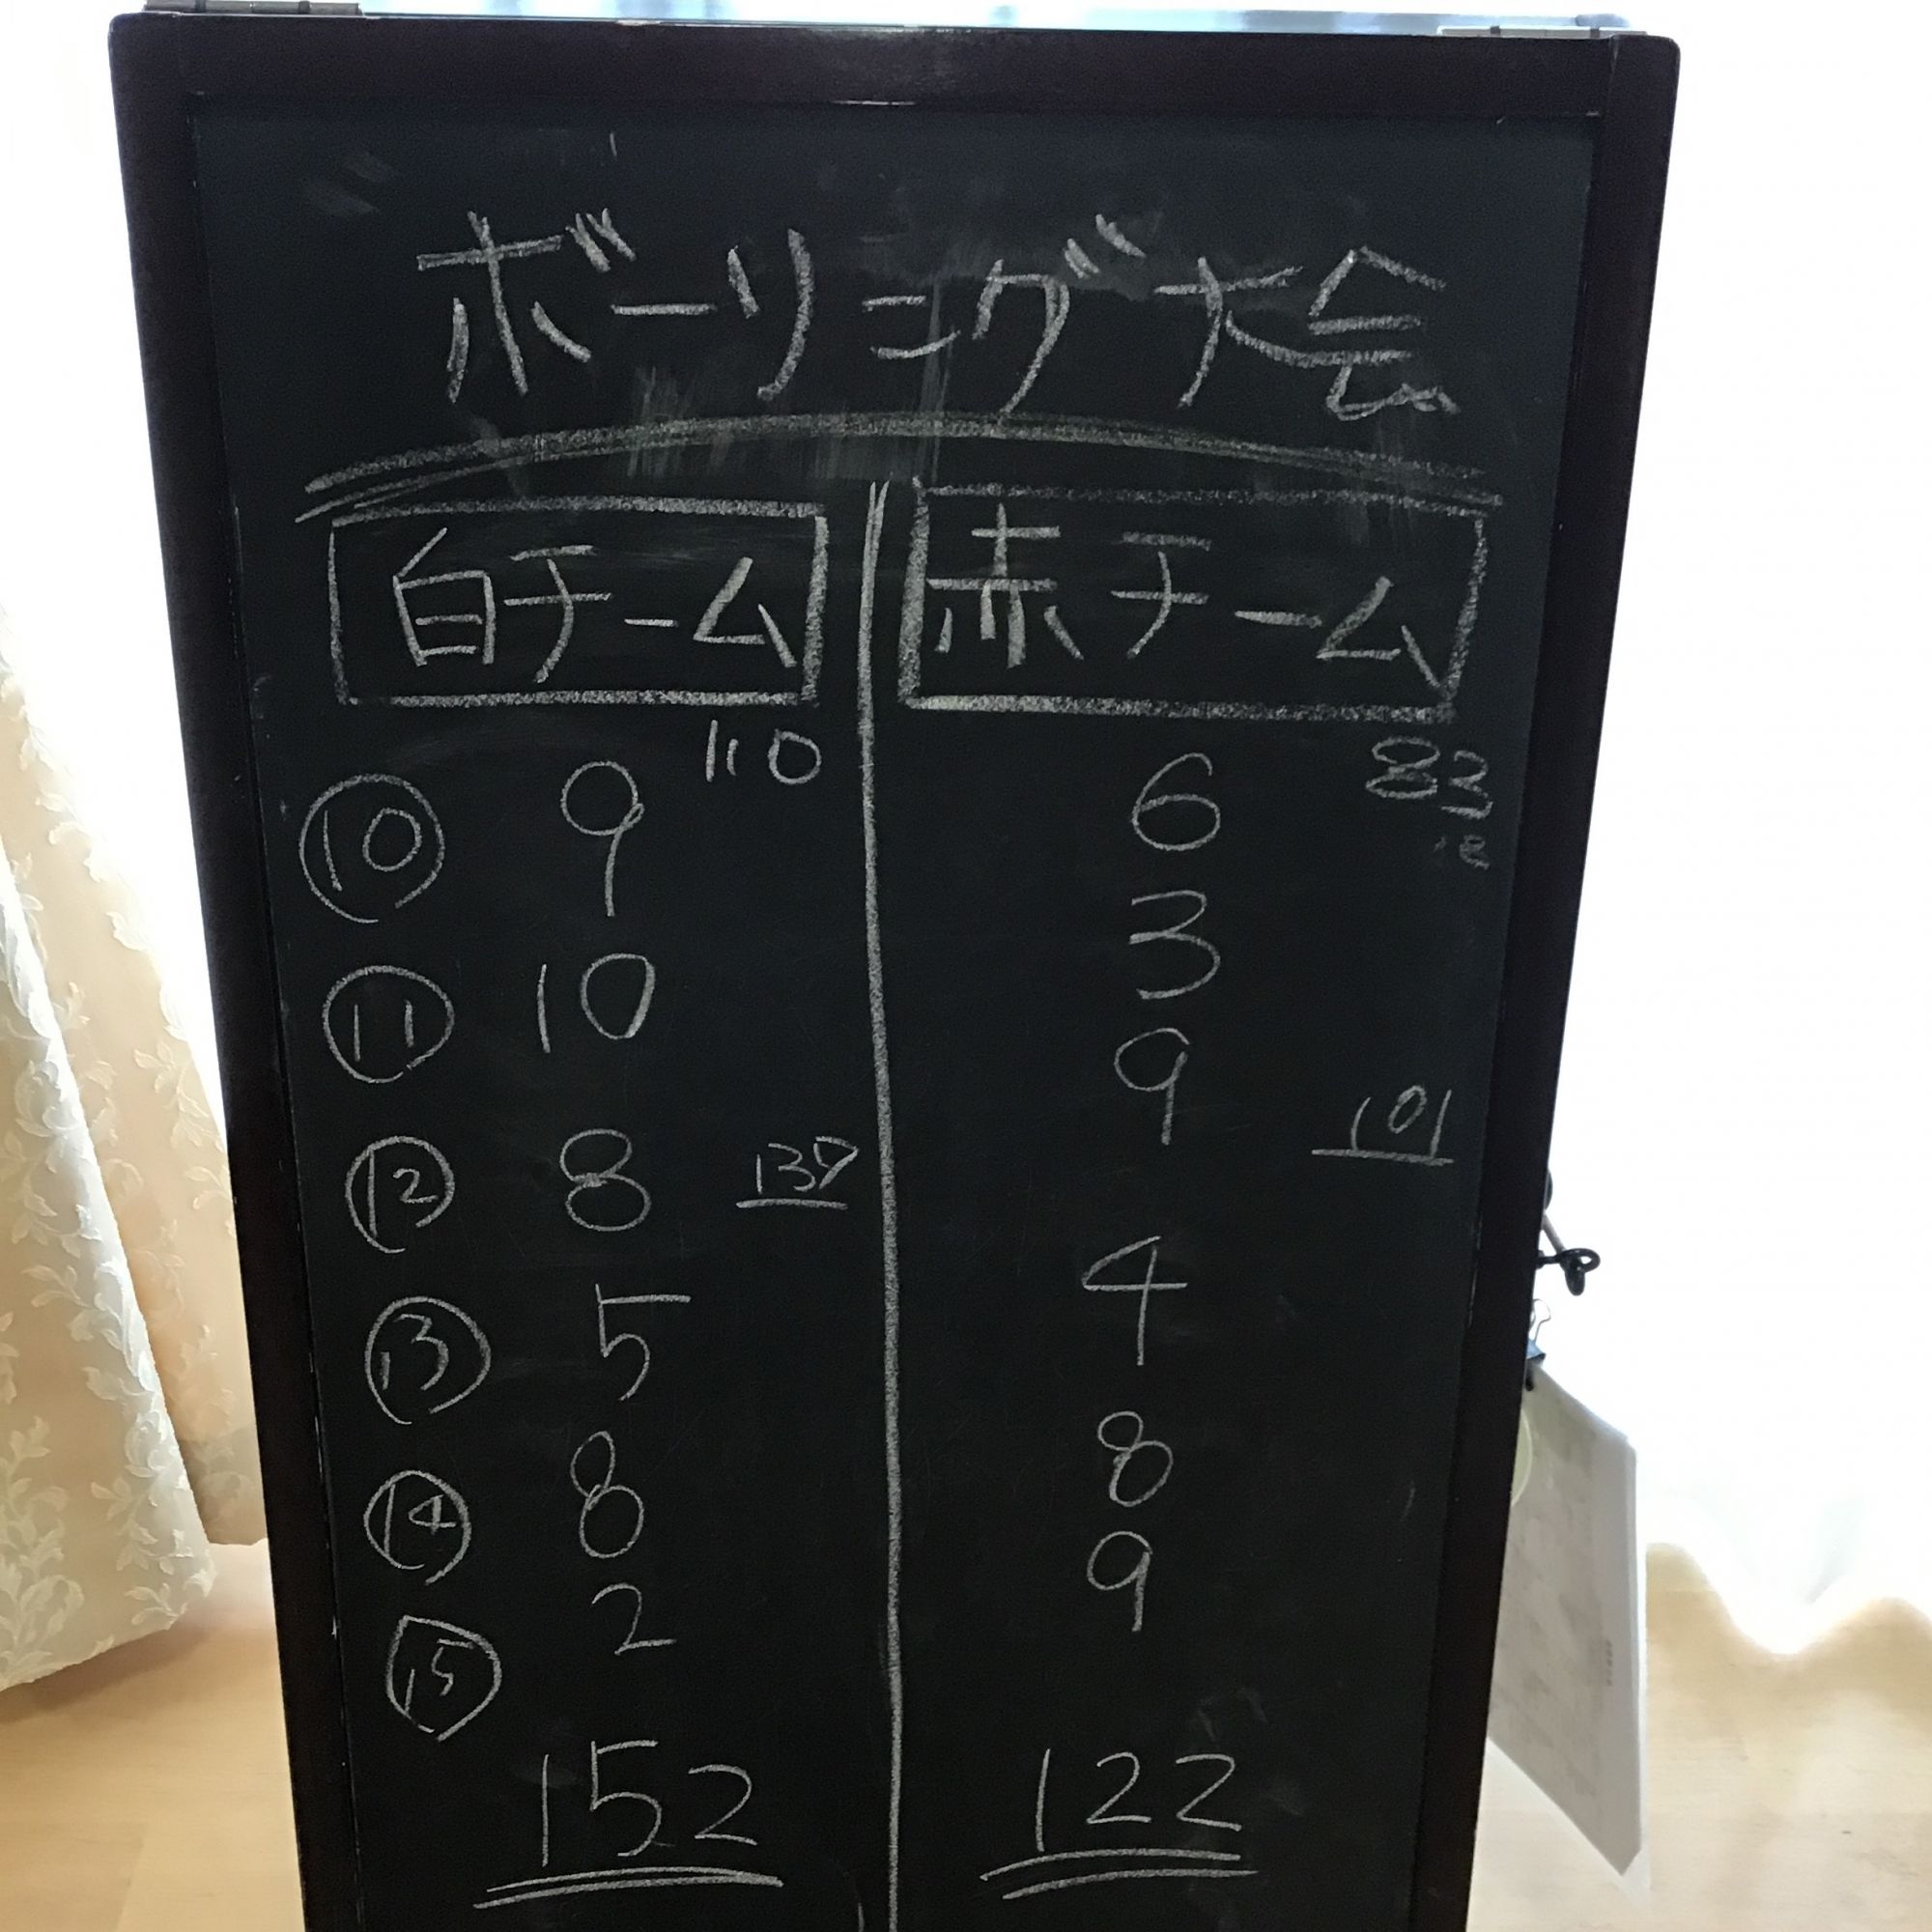 ボーリング大会
白チーム 赤チーム
110 83
⑩ 9 6
⑪ 10 3
⑫ 8 137 9 101
⑬ 5 4
⑭ 8 8
⑮ 2 9
152 122